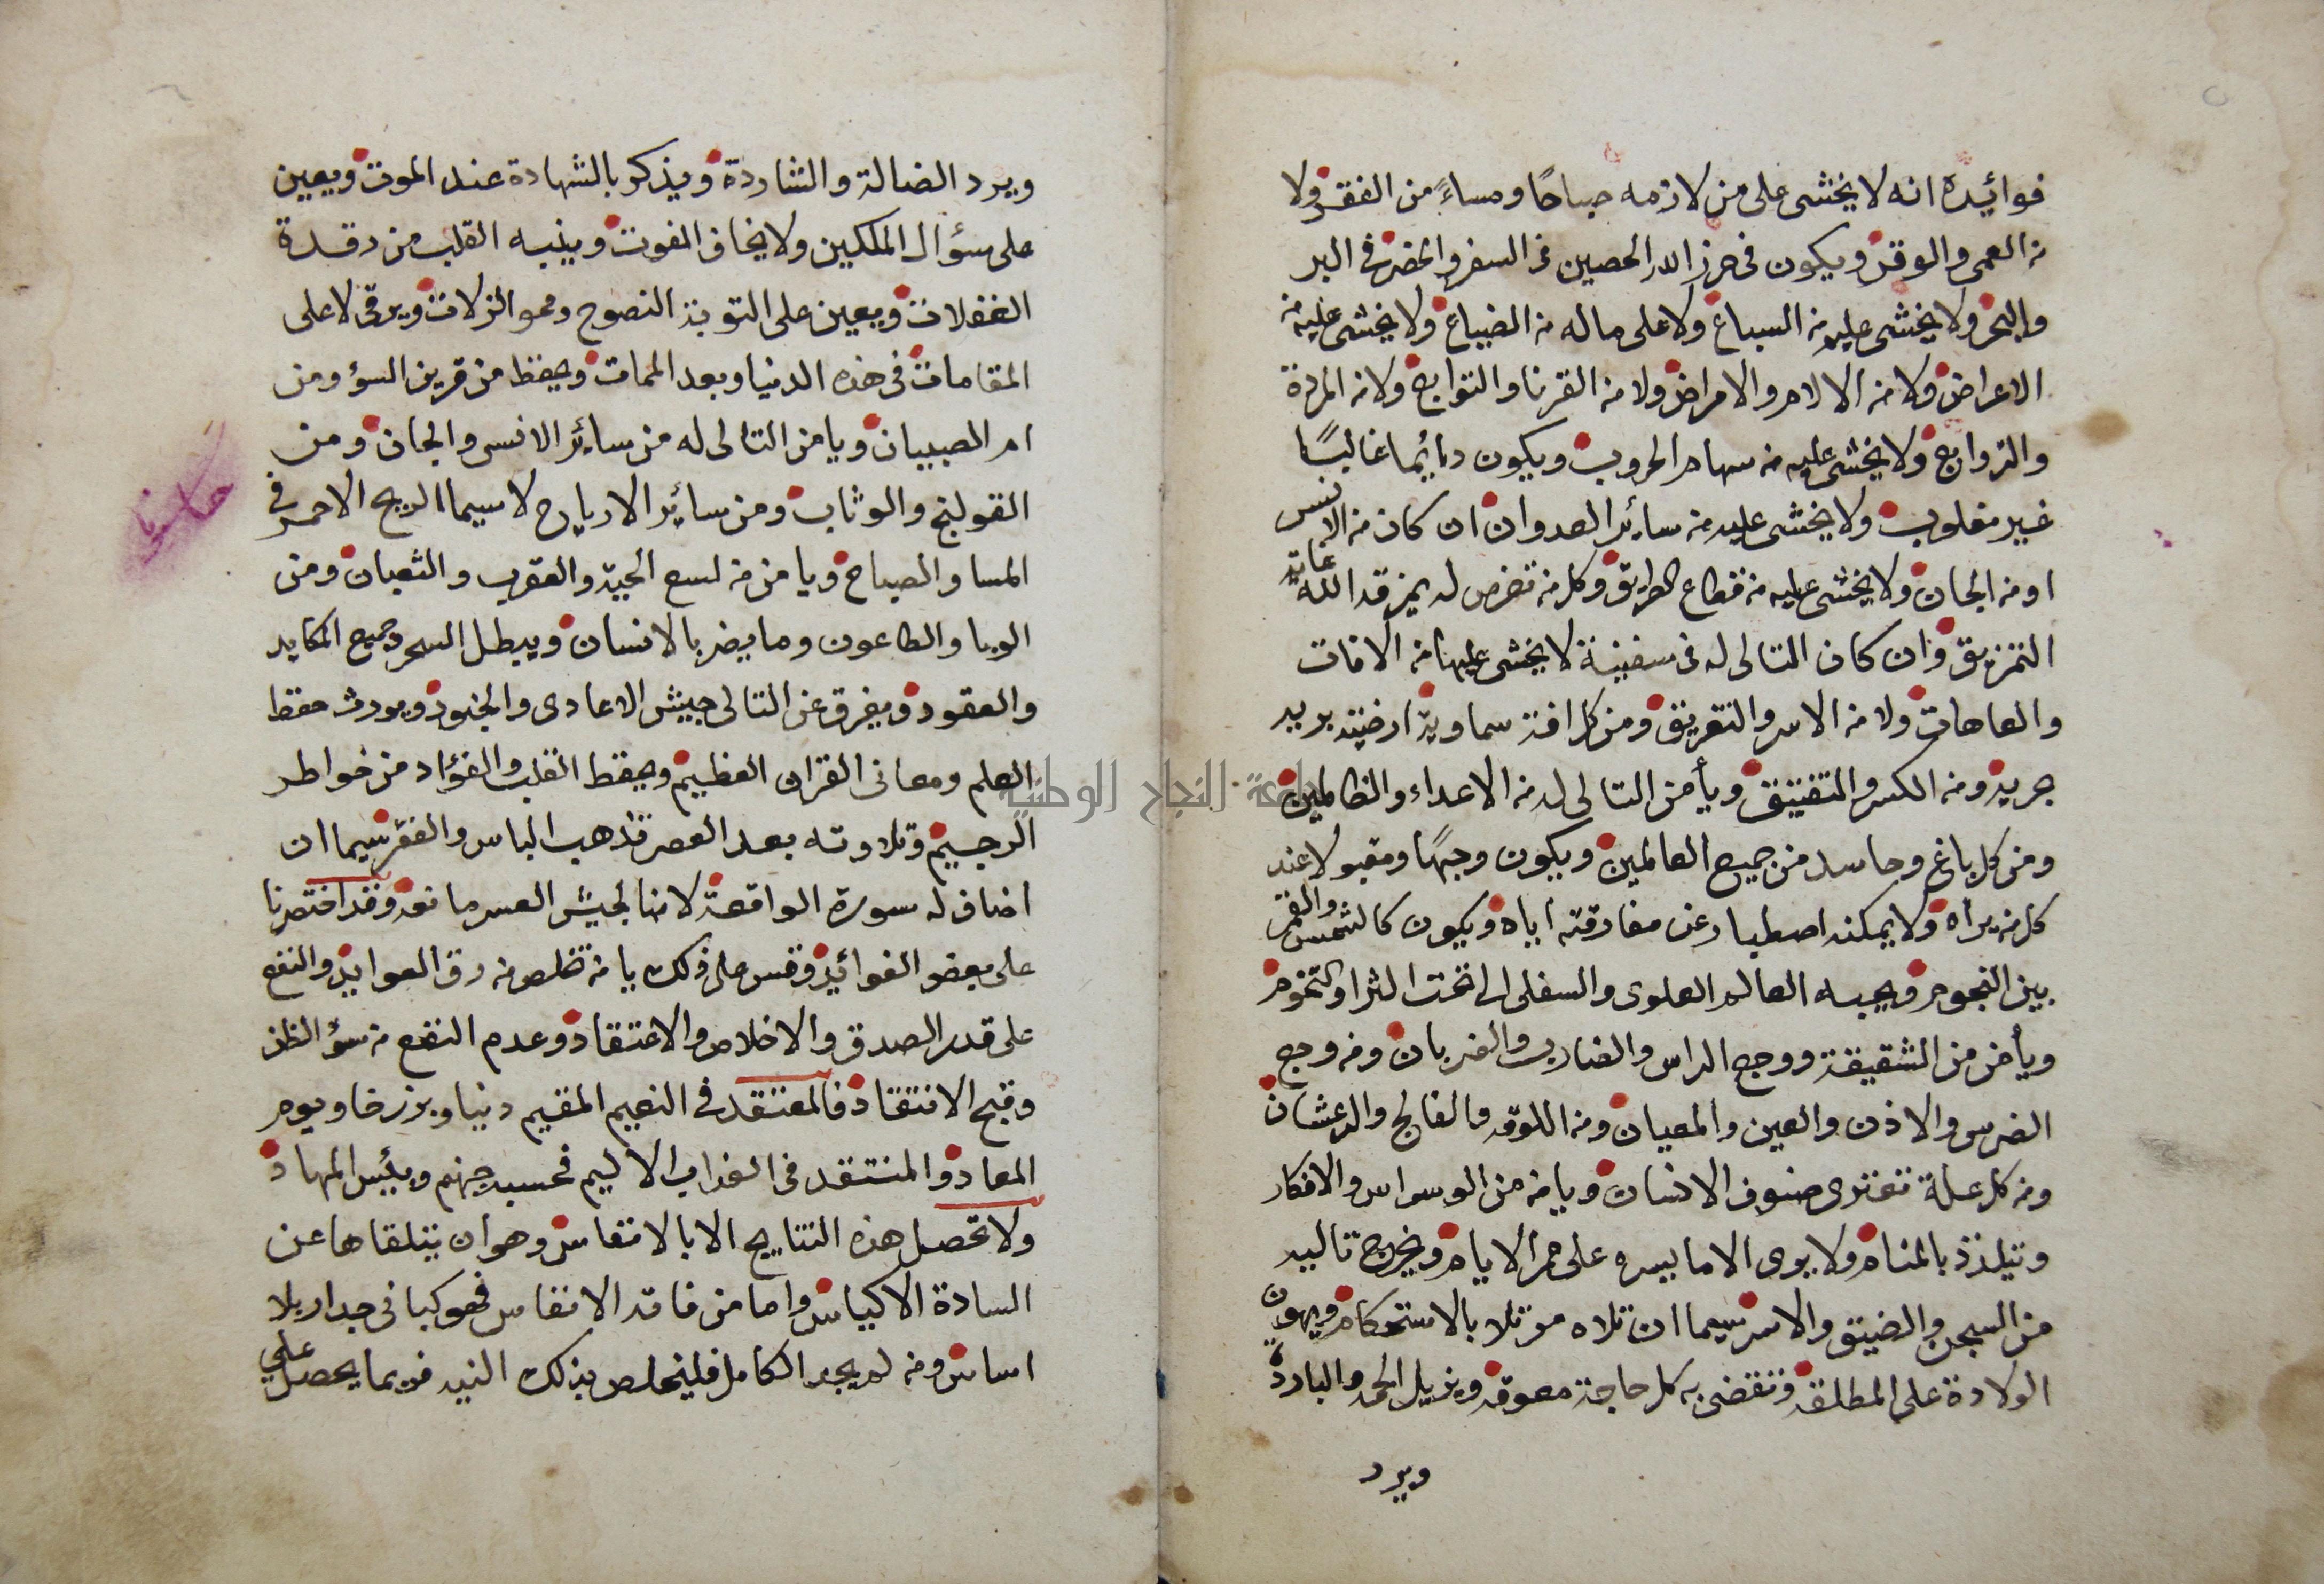 فوائيده انه لا يخشى على من لازمه صباحًا ومساءً من الفقر ولا
من العمى والوقر ويكون في حرز الله الحصين في السفر والحضر في البر
والبحر ولا يخشى عليه من السباع ولا على ماله من الضياع ولا يخشى عليه من
الاعراض ولا من الالام والامراض ولا من القرنا والتوابع ولا من المردة
والزوابع ولا يخشى عليه من سهام الحروب ويكون دايما غالبًا
غير مغلوب ولا يخشى عليه من سائر العدوان ان كان من الانس
او من الجان ولا يخشى عليه من قطاع الطريق وكل من تعرض له يمزقه الله غاية
التمزيق وان كان التالى له في سفينة لا يخشى عليها من الافات
والعاهات ولا من الاسر والتغريق ومن كل افة سماوية ارضية بريد
جريد ومن الكسر والتفتيق ويأمن التالى له من الاعداء والظالمين
ومن كل باغ وحاسد من جميع العالمين ويكون وجيهًا ومقبولا عند
كل من يراه ولا يمكنه اصطبار عن مفارقته اياه ويكون كالشمس والقمر
بين النجوم ويحبه العالم العلوى والسفلى الى تحت الثرا والتخوم
ويأمن من الشقيقة ووجع الراس والضارب والضربان ومن وجع
الضرس والاذن والعين والمعيان ومن اللوقه والفالج والرعشان
ومن كل علة تعترى صنوف الانسان ويامن من الوسواس والافكار
وتيلذذ بالمنام ولا يرى الا ما يسره على ممر الايام ويخرج تاليه
من السجن والضيق والاسر سيما ان تلاه مرتلا بالاستحكام ويهون
الولادة على المطلقه وتقضى به كل حاجة معوقه ويزيل الحمه والباردة
ويرد
ويرد الضالة والشاردة ويذكر بالشهادة عند الموت ويعين
على سؤال الملكين ولا يخاف الفوت وينبه القلب من رقدة
الغفلات ويعين على التوبة النصوح ومحو الزلات ويرقى لاعلى
المقامات في هذه الدنيا وبعد الممات ويحفظ من قرين السؤ ومن
ام الصبيان ويامن التالى له من سائر الانس والجان ومن
القولنج والوثاب ومن سائر الارياح لا سيما الريح الاحمر في
المسا والصباح ويامن من لسع الحية والعقرب والثعبان ومن
الوبا والطاعون وما يضر بالانسان ويبطل السحر وجميع المكايد
والعقود ويفرق عن التالى جيش الاعادى والجنود ويورث حفظ
العلم ومعانى القران العظيم ويحفظ القلب والفؤاد من خواطر
الرجيم وتلاوته بعد العصر تذهب الباس والفقر سيما ان
اضاف له سورة الواقعة لانها لجيش العسر مانعه وقد اختصرنا
على بعض الفوائد وقس على ذلك يا من تخلص من رق العوايد والنفع
على قدر الصدق والاخلاص والاعتقاد وعدم النفع من سؤ الظن
وقبح الانتقاد فالمعتقد في النعيم المقيم دنيا وبرزخا ويوم
المعاد والمنتقد في العذاب الاليم فحسبه جهنم وبئس المهاد
ولا تحصل هذه النتايج الا بالانفاس وهو ان يتلقاها عن
السادة الاكياس واما من فاته الانفاس فهو كبانى جدار بلا
اساس ومن لم يجد الكامل فليخلص بذلك النيه فربما يحصل على
جامعة النجاح الوطنية